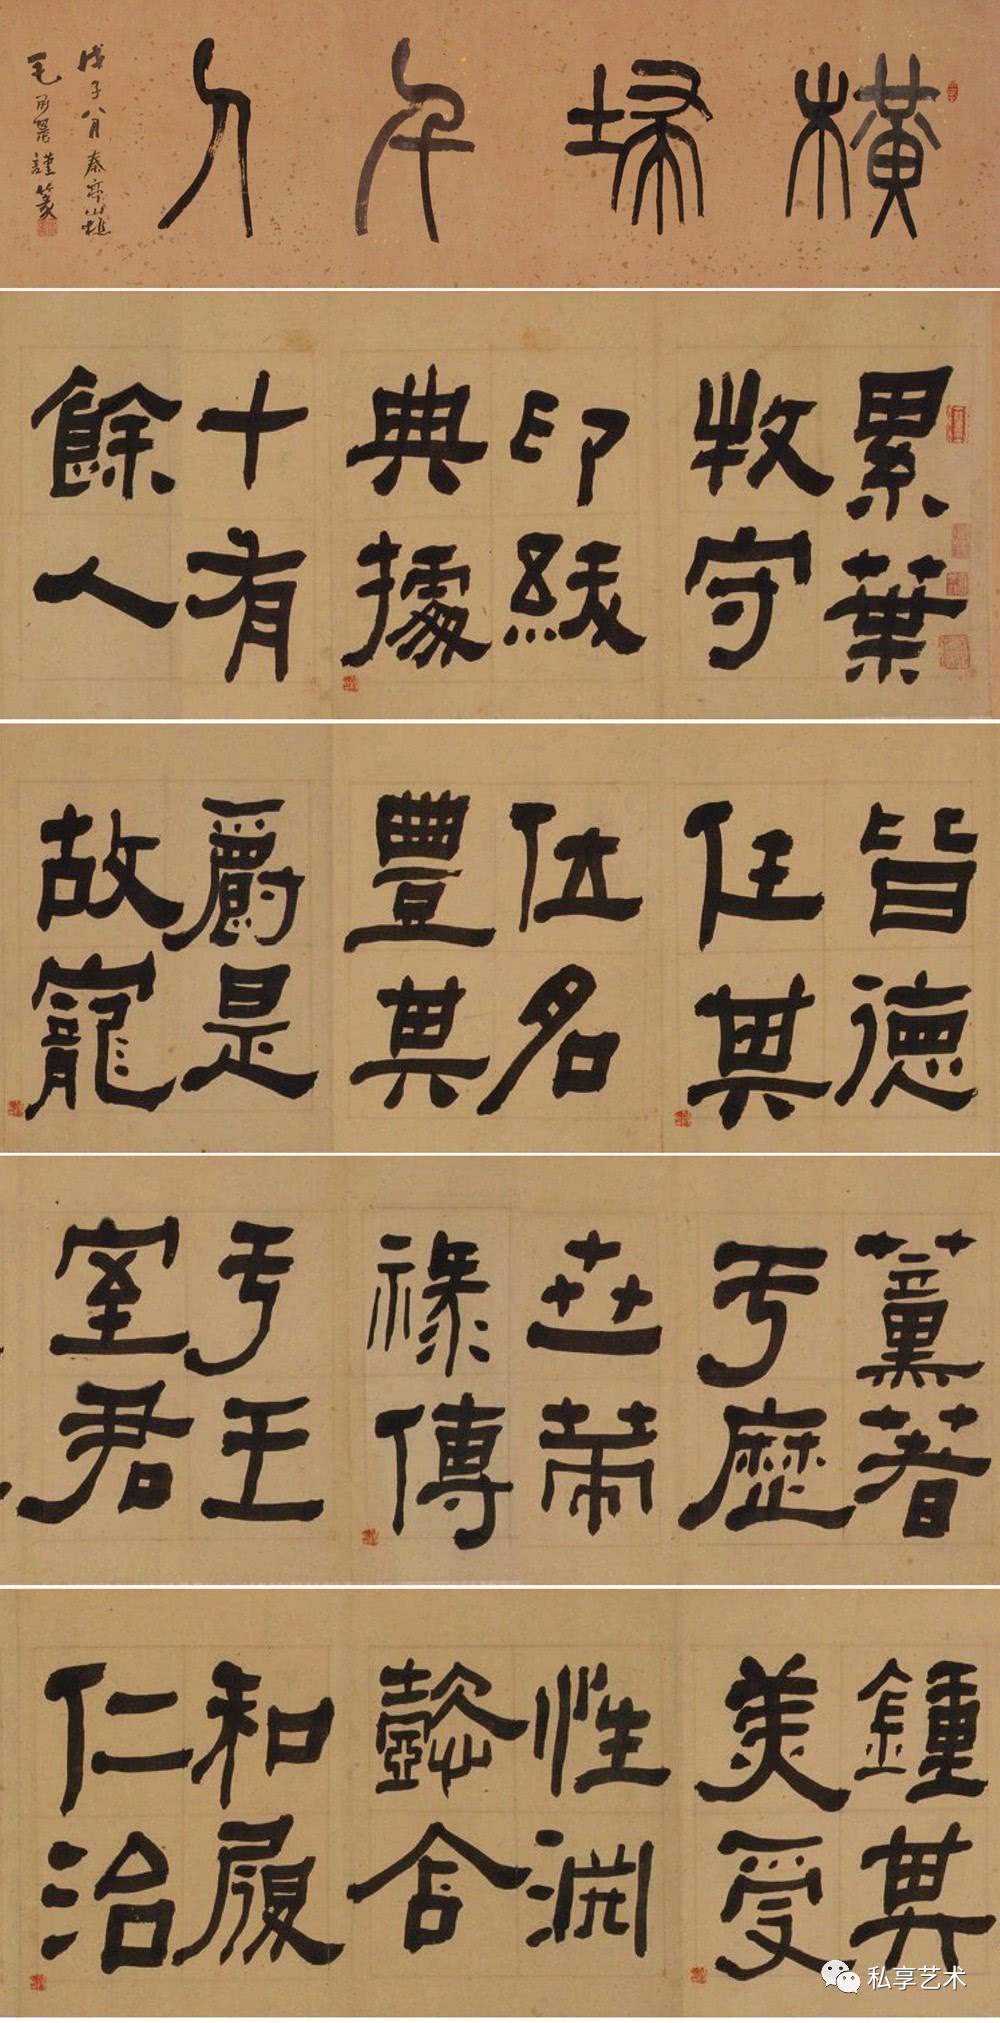 橫掃千人
戊子八月秦亭山樵
毛謹篆
累葉
牧守
印紱
典據
十有
餘人
皆德
任其
位名
豐其
爵是
故寵
薰著
于歷
世策
祿傳
于王
室君
鍾其
美受
性淵
懿含
和履
仁治
私享艺术